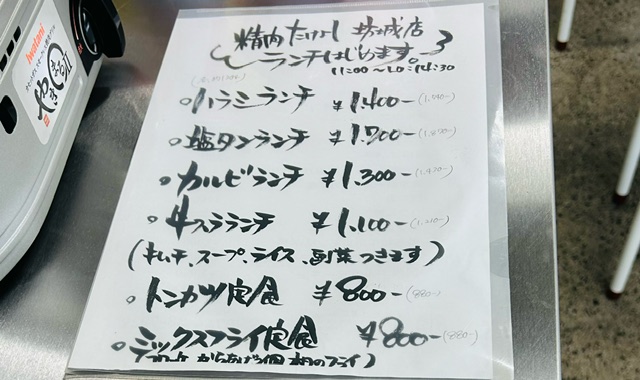 精肉たけよし 坊城店
ランチはじめます。
11:00～LO:14:30
ハラミランチ ¥1,400-
塩タンランチ ¥1,700- (1,870-)
カルビランチ ¥1,300-
牛スララランチ ¥1,100-
(キムチ、スープ、ライス、副菜つきます)
トンカツ定食 ¥800- (880-)
ミックスフライ定食 ¥800- (880-)
からあげ 本日のフライ)
Iwatani
やきまる